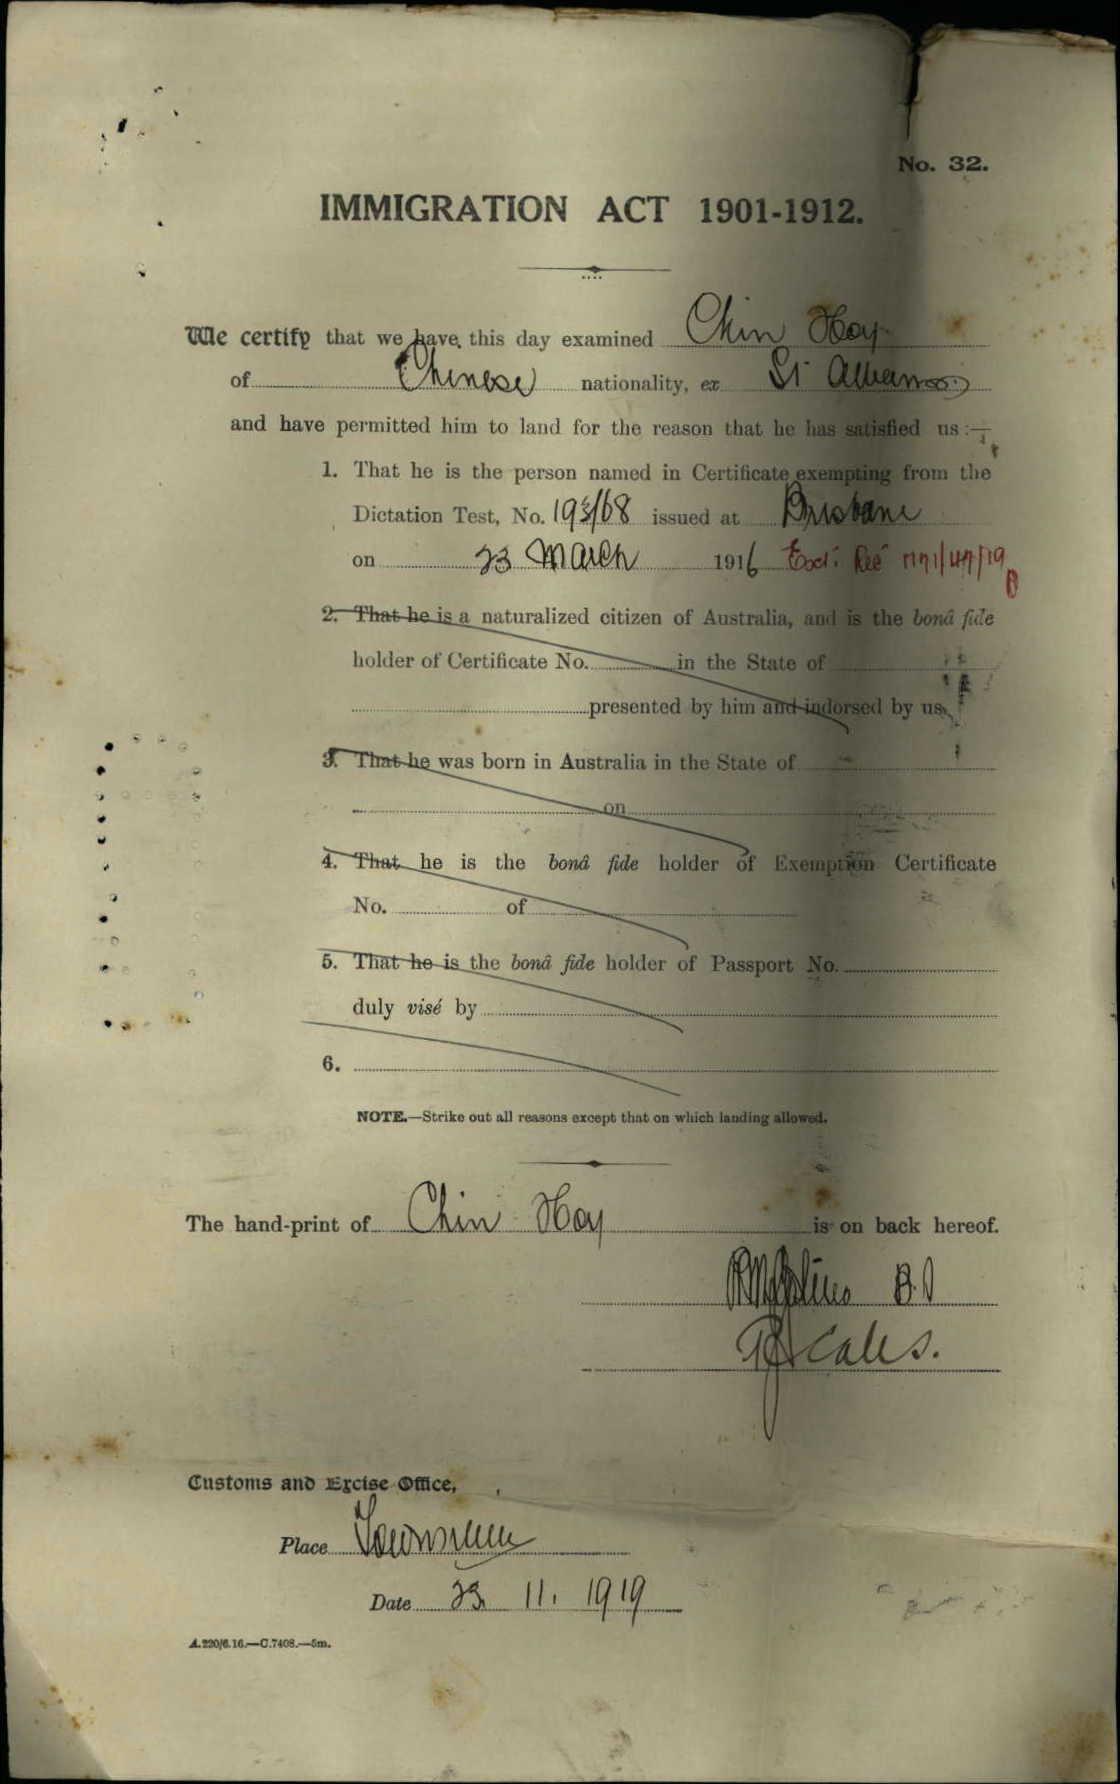 No. 32.
IMMIGRATION ACT 1901-1912.
We certify that we have this day examined Chin Hoy
of Chinese nationality, ex St Albans
and have permitted him to land for the reason that he has satisfied us :—
1. That he is the person named in Certificate exempting from the
Dictation Test, No. 193/68 issued at Brisbane
on 23 March 1916
2. That he is a naturalized citizen of Australia, and is the bonâ fide
holder of Certificate No. in the State of
presented by him and indorsed by us.
3. That he was born in Australia in the State of
on
4. That he is the bonâ fide holder of Exemption Certificate
No. of
5. That he is the bonâ fide holder of Passport No.
duly visé by
6.
NOTE.—Strike out all reasons except that on which landing allowed.
The hand-print of Chin Hoy is on back hereof.
Customs and Excise Office,
Place Townsville
Date 23. 11. 1919
A.220/6.16.—C.7408.—5m.